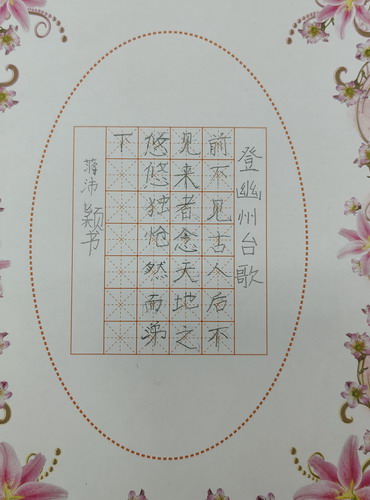 登幽州台歌
前不见古人后不
见来者念天地之
悠悠独怆然而涕
下
蒋沛颖书